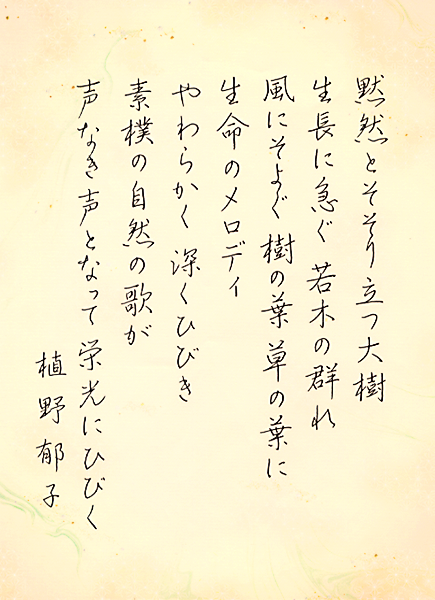 黙然とそそり立つ大樹
生長に急ぐ若木の群れ
風にそよぐ樹の葉草の葉に
生命のメロディ
やわらかく深くひびき
素樸の自然の歌が
声なき声となって栄光にひびく
植野郁子